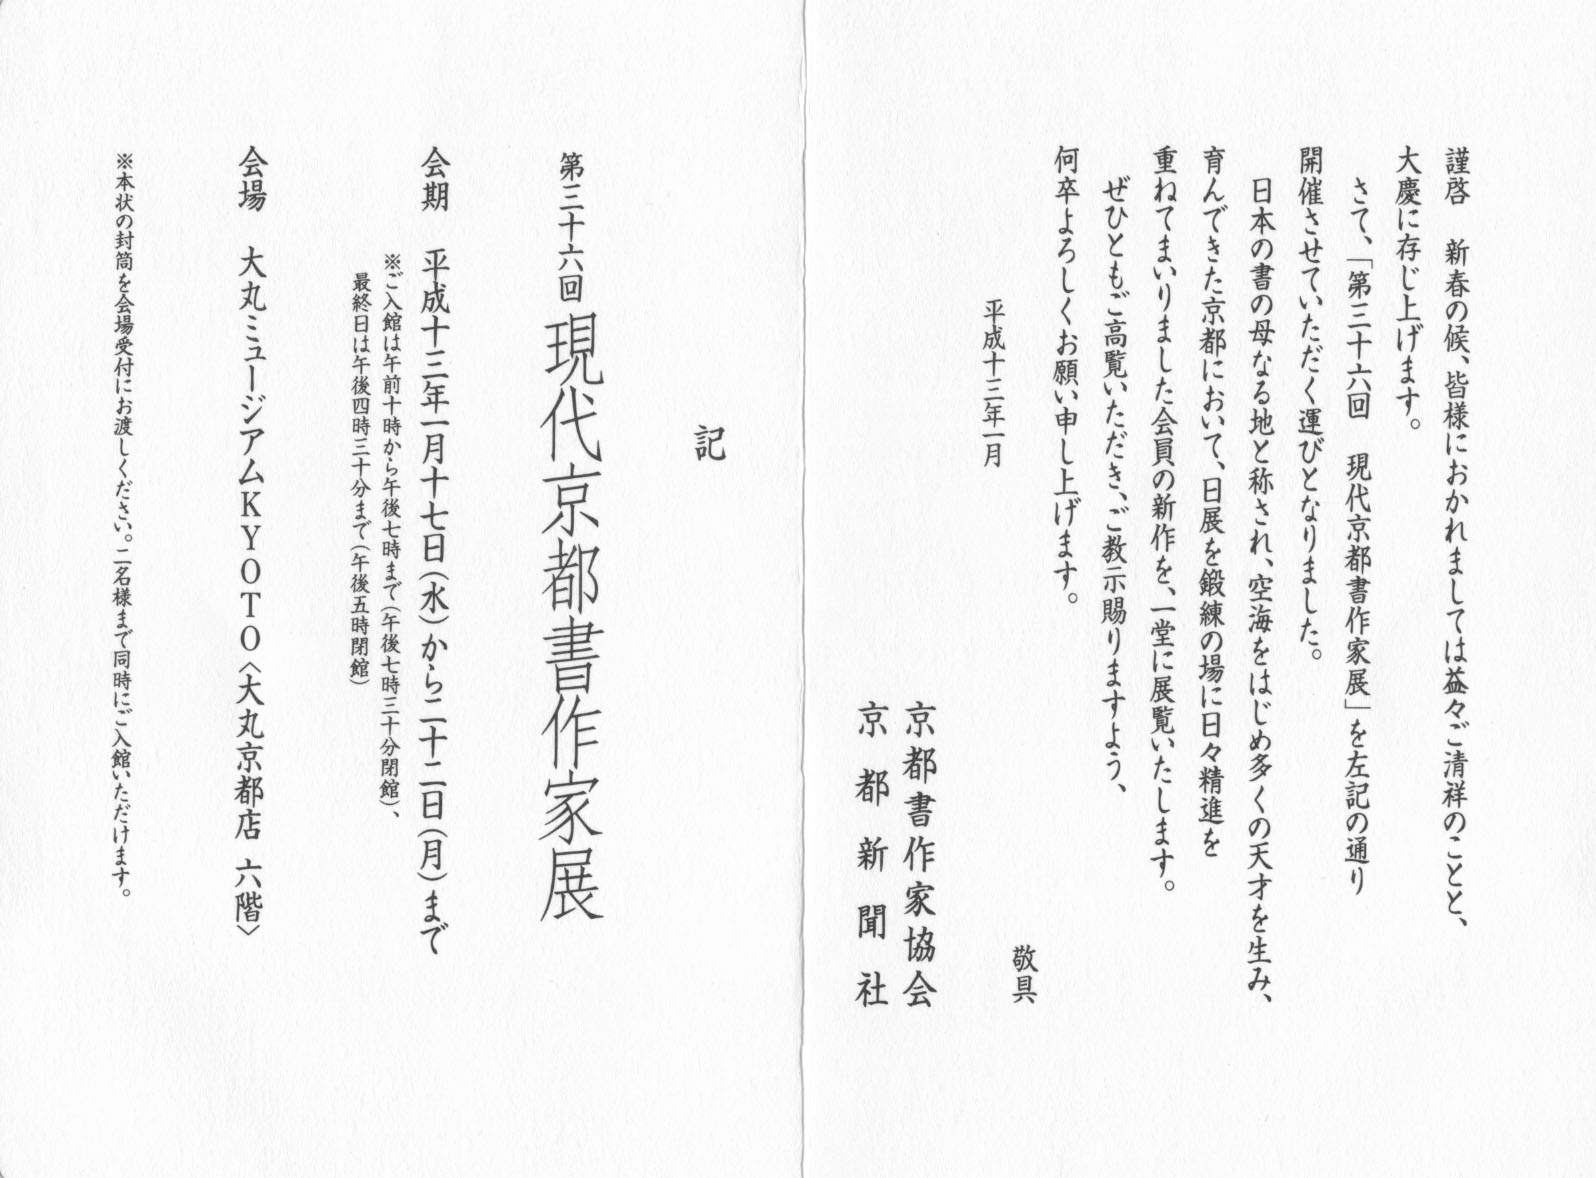 謹啓　新春の候、皆様におかれましては益々ご清祥のことと、
大慶に存じ上げます。
さて、「第三十六回　現代京都書作家展」を左記の通り
開催させていただく運びとなりました。
日本の書の母なる地と称され、空海をはじめ多くの天才を生み、
育んできた京都において、日展を鍛練の場に日々精進を
重ねてまいりました会員の新作を、一堂に展覧いたします。
ぜひともご高覧いただき、ご教示賜りますよう、
何卒よろしくお願い申し上げます。
敬具
平成十三年一月
京都書作家協会
京都新聞社
記
第三十六回 現代京都書作家展
会期　平成十三年一月十七日（水）から二十二日（月）まで
※ご入館は午前十時から午後七時まで（午後七時三十分閉館）、
最終日は午後四時三十分まで（午後五時閉館）
会場　大丸ミュージアムKYOTO〈大丸京都店 六階〉
※本状の封筒を会場受付にお渡しください。二名様まで同時にご入館いただけます。